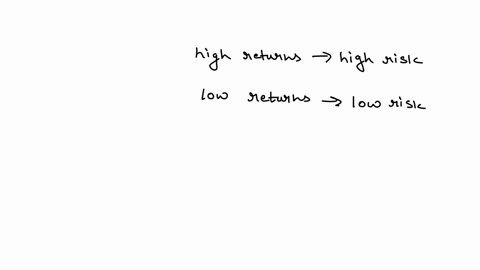 high returns → high risk
low returns → low risk